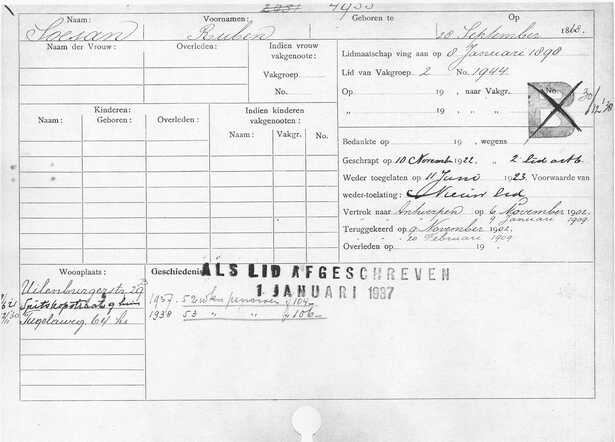 4933
Naam: Voornamen: Geboren te Op
Soesan Ruben 28 September 1868.
Naam der Vrouw: Overleden: Indien vrouw vakgenoote:
Vakgroep
No.
Lidmaatschap ving aan op 8 Januari 1898
Lid van Vakgroep 2 No. 1944.
Op 19 , naar Vakgr. No.
„ 19 , „ „
30/12 '38
Kinderen: Indien kinderen vakgenooten:
Naam: Geboren: Overleden: Naam: Vakgr. No.
Bedankte op 19 , wegens
Geschrapt op 10 Novemb 1922. „ 2 lid art 6
Weder toegelaten op 11 Juni 1923. Voorwaarde van
weder-toelating: Nieuw lid
Vertrok naar Antwerpen op 6 November 1902.
9 Januari 1909
Teruggekeerd op 9 November 1902.
20 Februari 1909
Overleden op 19
Woonplaats: Geschiedenis
ALS LID AFGESCHREVEN
1 JANUARI 1937
Uilenburgerstr. 29
Spitskopstraat 9 huis
Tugelaweg 64 hs
1937 52 wkn pensioen f 104.-
1938 53 „ „ f 106.-